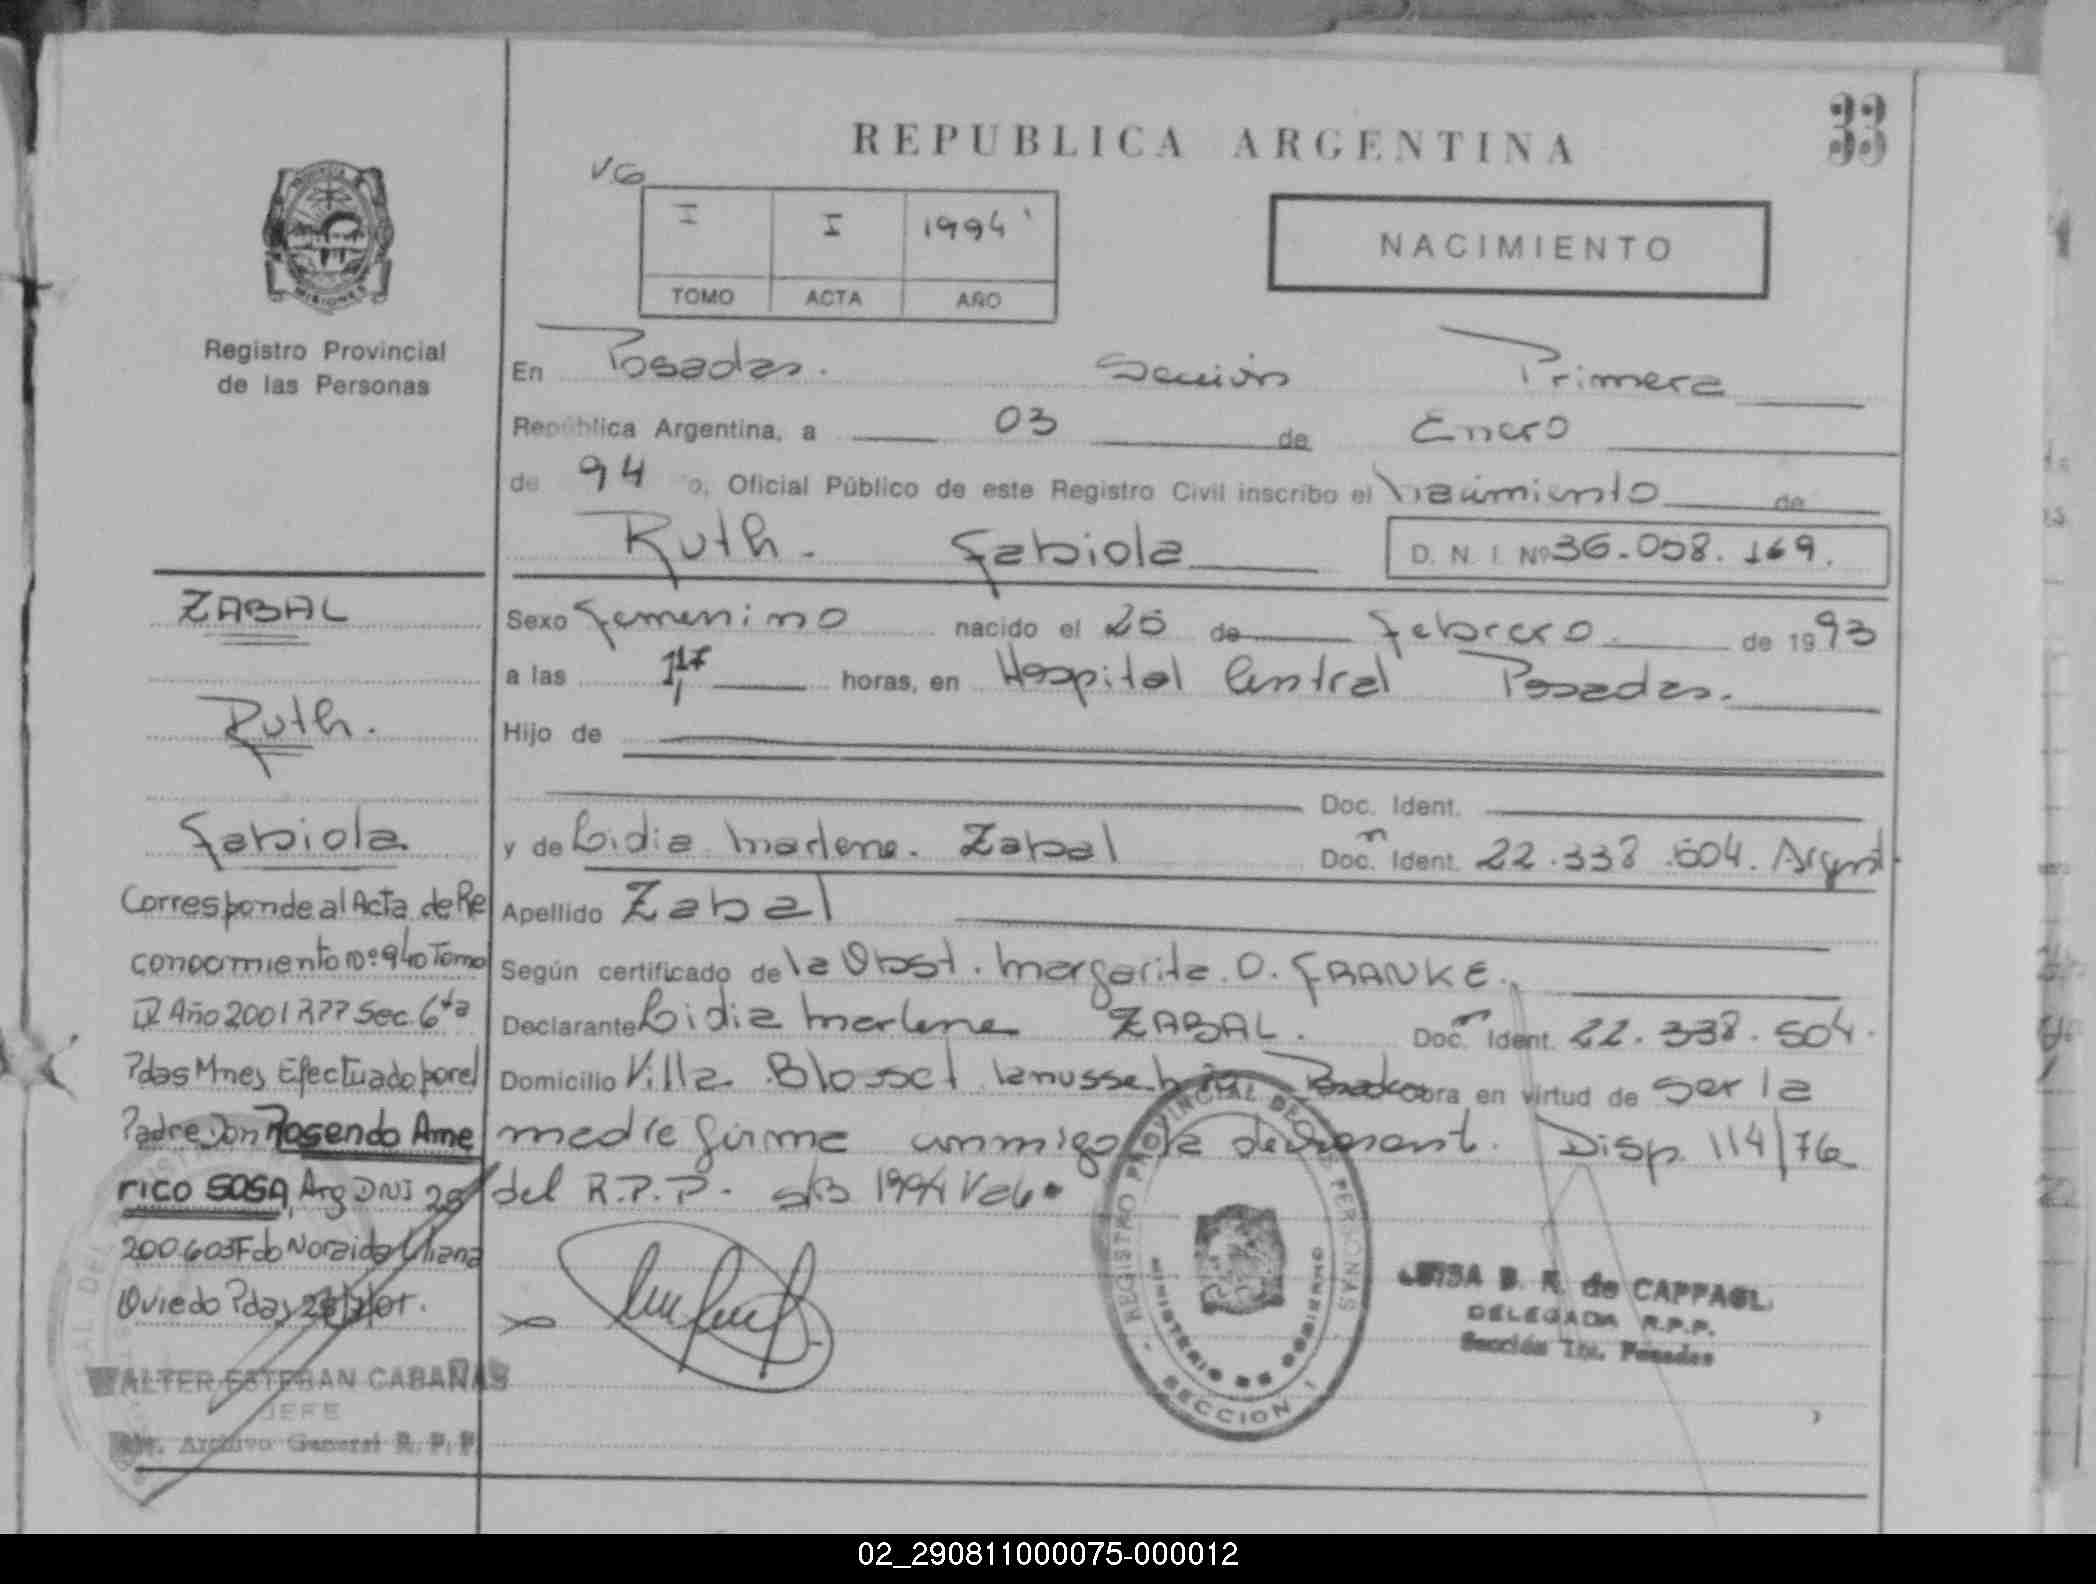 REPUBLICA ARGENTINA
33
VG
I I 1994
TOMO ACTA AÑO
NACIMIENTO
MISIONES
Registro Provincial
de las Personas
En Posadas. Sección Primera
República Argentina, a 03 de Enero
de 94 o, Oficial Público de este Registro Civil inscribo el Nacimiento de
Ruth. Fabiola D. N. I. Nº 36.058.169.
Sexo Femenino nacido el 26 de Febrero de 1993
a las horas, en Hospital Central Posadas.
Hijo de
Doc. Ident.
y de Lidia Marlene. Zabal Doc. Ident. 22.338.504. Argent
Apellido Zabal
Según certificado de la Obst. Margarita. O. FRANKE.
Declarante Lidia Marlene ZABAL. Doc. Ident. 22.338.504.
Domicilio Villa Blosset obra en virtud de ser la
madre firma conmigo la declarant. Disp. 114/76
del R.P.P. - s/b 1994 Vale
ZABAL
Ruth.
Fabiola
Corresponde al Acta de Re
conocimiento Nº 940 Tomo
IV Año 2001 RPP Sec. 6ta
Pdas Mnes Efectuado por el
Padre Don Rosendo Ame
rico SOSA, Arg DNI 28
200.603 Fdo Noraida Liliana
Oviedo Pdas
WALTER ESTEBAN CABAÑAS
JEFE
Archivo General R. P. P.
REGISTRO PROVINCIAL DE LAS PERSONAS
MINISTERIO DE GOBIERNO
SECCION 1
LUISA B. R. de CAPPAGL.
DELEGADA R.P.P.
Sección 1ra. Posadas
02_290811000075-000012